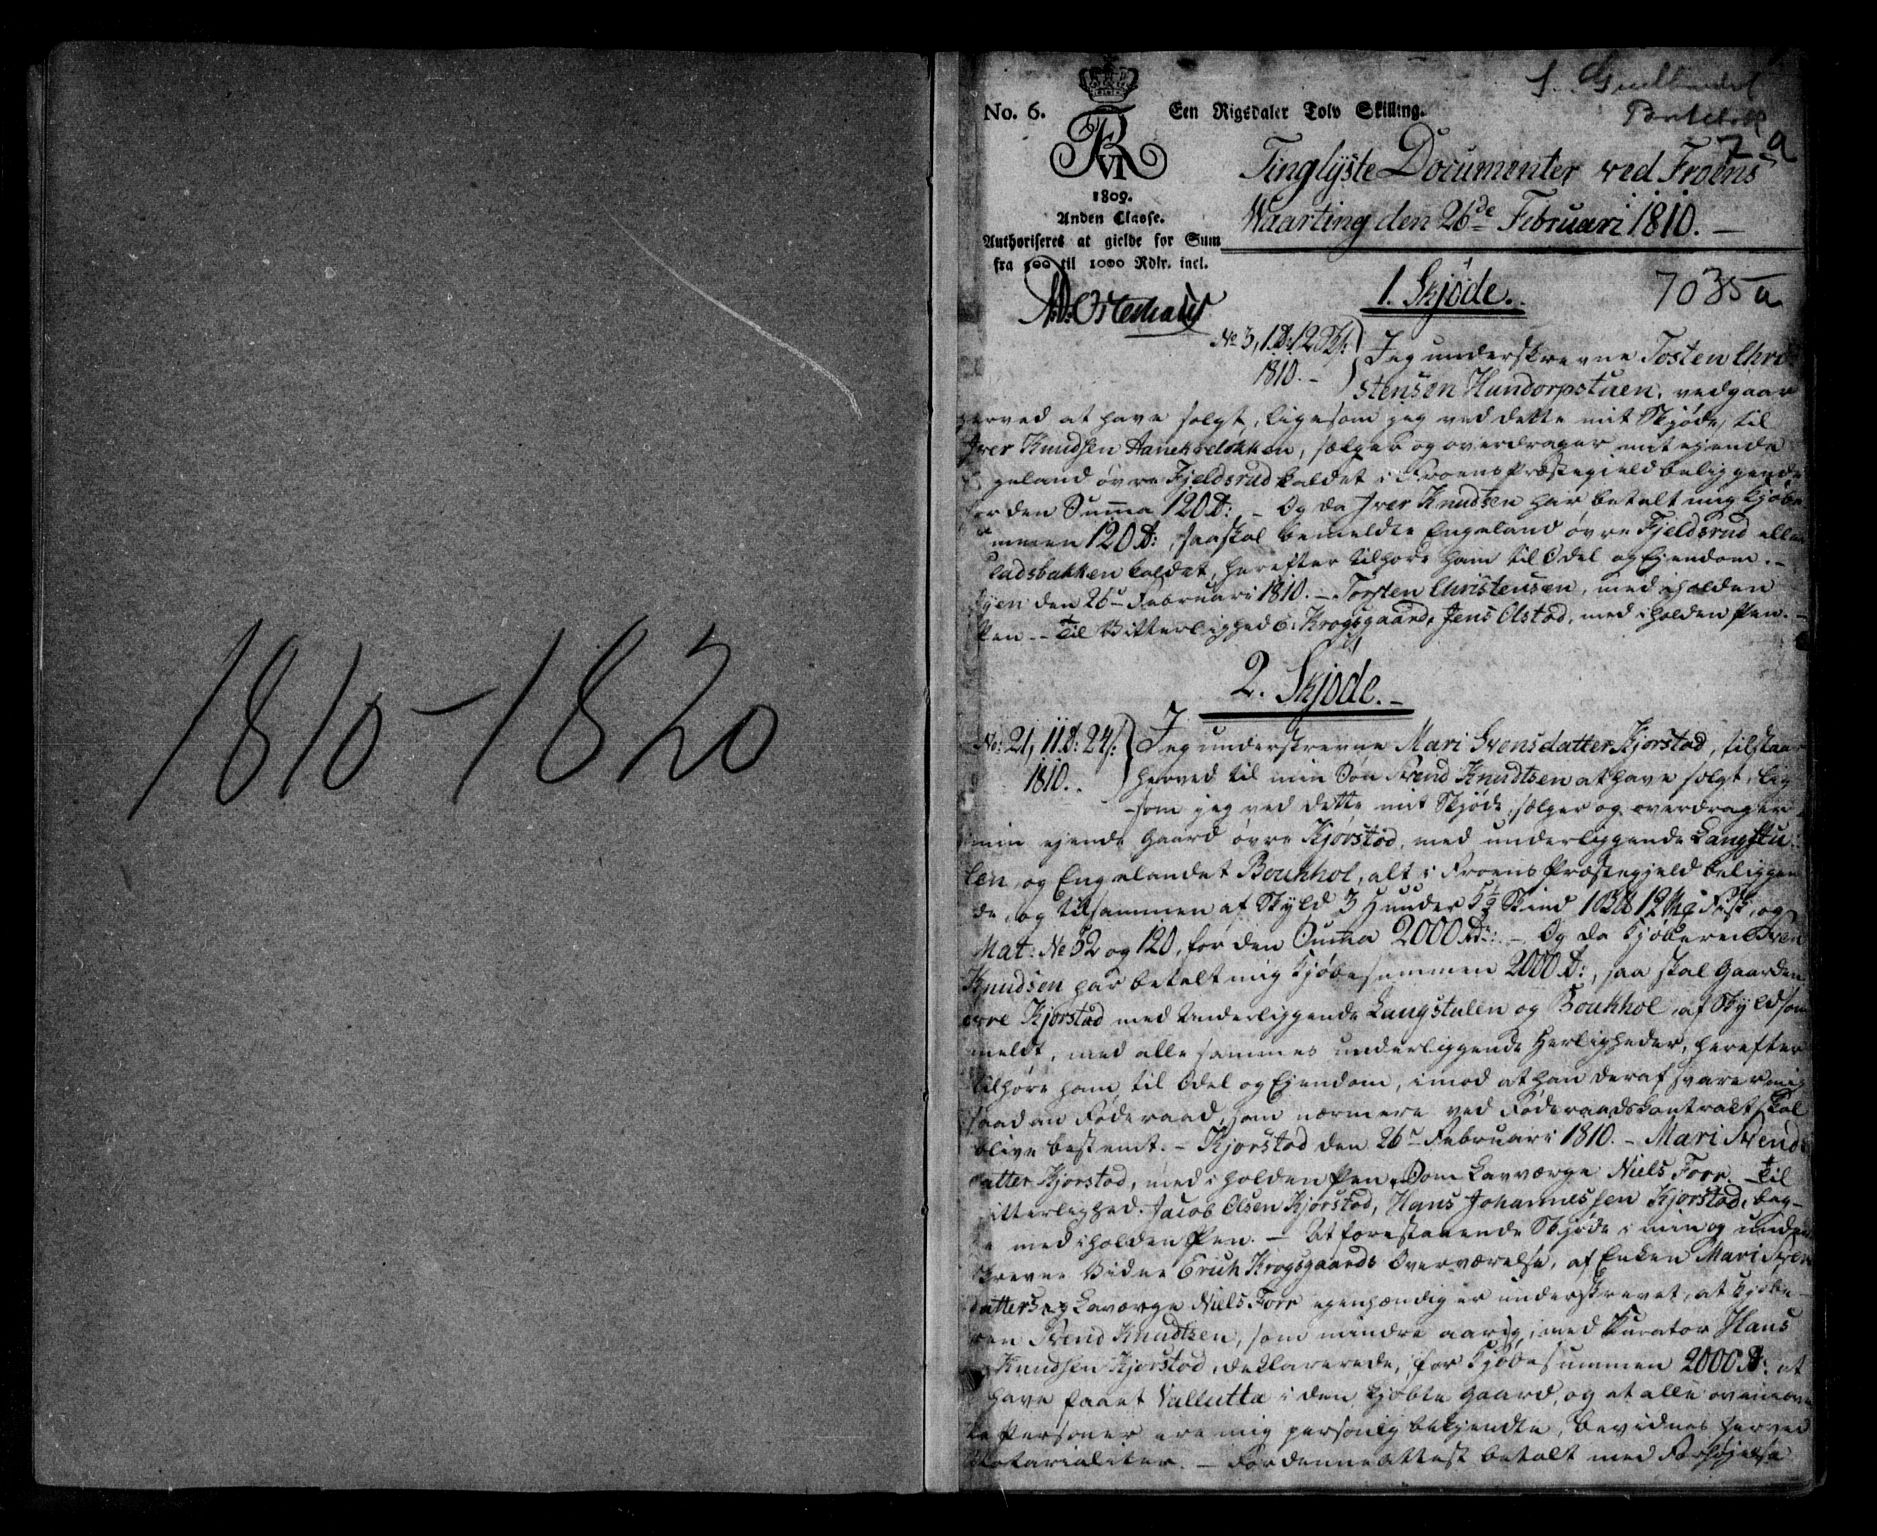 1810-1820
No. 6.
Een Rigsdaler Tolv Skilling.
FR VI
1809.
Anden Classe.
Authoriseres at gielde for Sum
fra 500 til 1000 Rdlr. incl.
7 a
Tinglyste Documenter ved Froens
Waarting den 26de Februari 1810. —
1. Skjøde.
7035 a
No 3, 1 Rd: 12 Sk:
1810. -
Jeg underskrevne Tosten Chri
stensen Hundorpstuen, vedgaar
herved at have solgt, ligesom jeg ved dette mit Skjøde, til
Iver Knudsen, sælger og overdrager mit eiende
geland övre Fjeldsrud kaldet i Froens Præstegield beliggende
for den Summa 120 Rd: - Og da Iver Knudsen har betalt mig Kjøbe
ummen 120 Rd:, saa skal bemeldte Engeland övre Fjeldsrud eller
ladsbakken kaldet, herefter tilhøre ham til Odel og Ejendom. -
den 26de Februari 1810. - Torsten Christensen, med iholden
Pen. - Til Vitterlighed E: Krogsgaard, Jens Olstad, med iholden Pen. -
2. Skjøde. -
No: 21, 11 Rd: 24 s:
1810. .
Jeg underskrevne Mari Svensdatter Kjorstad, tilstaar
herved til min Søn Svend Knudtsen at have solgt, lig
som jeg ved dette mit Skjøde, sælger og overdrager
min ejende Gaard övre Kjørstad, med underliggende Langstu-
len og Engelandet Boukhol, alt i Froens Præstegjeld beliggen
de, og tilsammen af Skyld 3 Hunder 5½ Skind og
Mat: No 52 og 120, for den Summa 2000 Rd: - Og da Kjøberen Sven
Knudsen har betalt mig Kjøbesummen 2000 Rd:, saa skal Gaarden
övre Kjørstad med Underliggende Langstulen og Boukhol, af Skyld som
meldt, med alle sammes underliggende Herligheder, herefter
tilhøre ham til Odel og Ejendom, imod at han deraf svarer mig
saadan Føderaad, som nærmere ved Føderaadskontrakt skal
blive bestemt. - Kjorstad den 26de Februari 1810. - Mari Svends
datter Kjorstad, med iholden Pen. Som Lavværge Niels Forr. - Til
itterlighed. Jacob Olsen Kjørstad, Hans Johannessen Kjorstad, beg-
e med iholden Pen. - At forestaaende Skjøde i min og under
skrevne Vidne Erich Krogsgaards Overværelse, af Enken Mari Sven
datter og Lavværge Niels Forr egenhændig er underskrevet, at Kjøbe-
ren Svend Knudtsen, som mindre aarig, med Kurator Hans
Knudsen Kjorstad, declarerede, for Kjøbesummen 2000 Rd: at
have faaet Vallutta i den kjøbte Gaard, og at alle ovennævn
te Personer ere mig personlig bekjendte, bevidnes herved
Notarialiter. - For denne Attest betalt med Forhøjelse